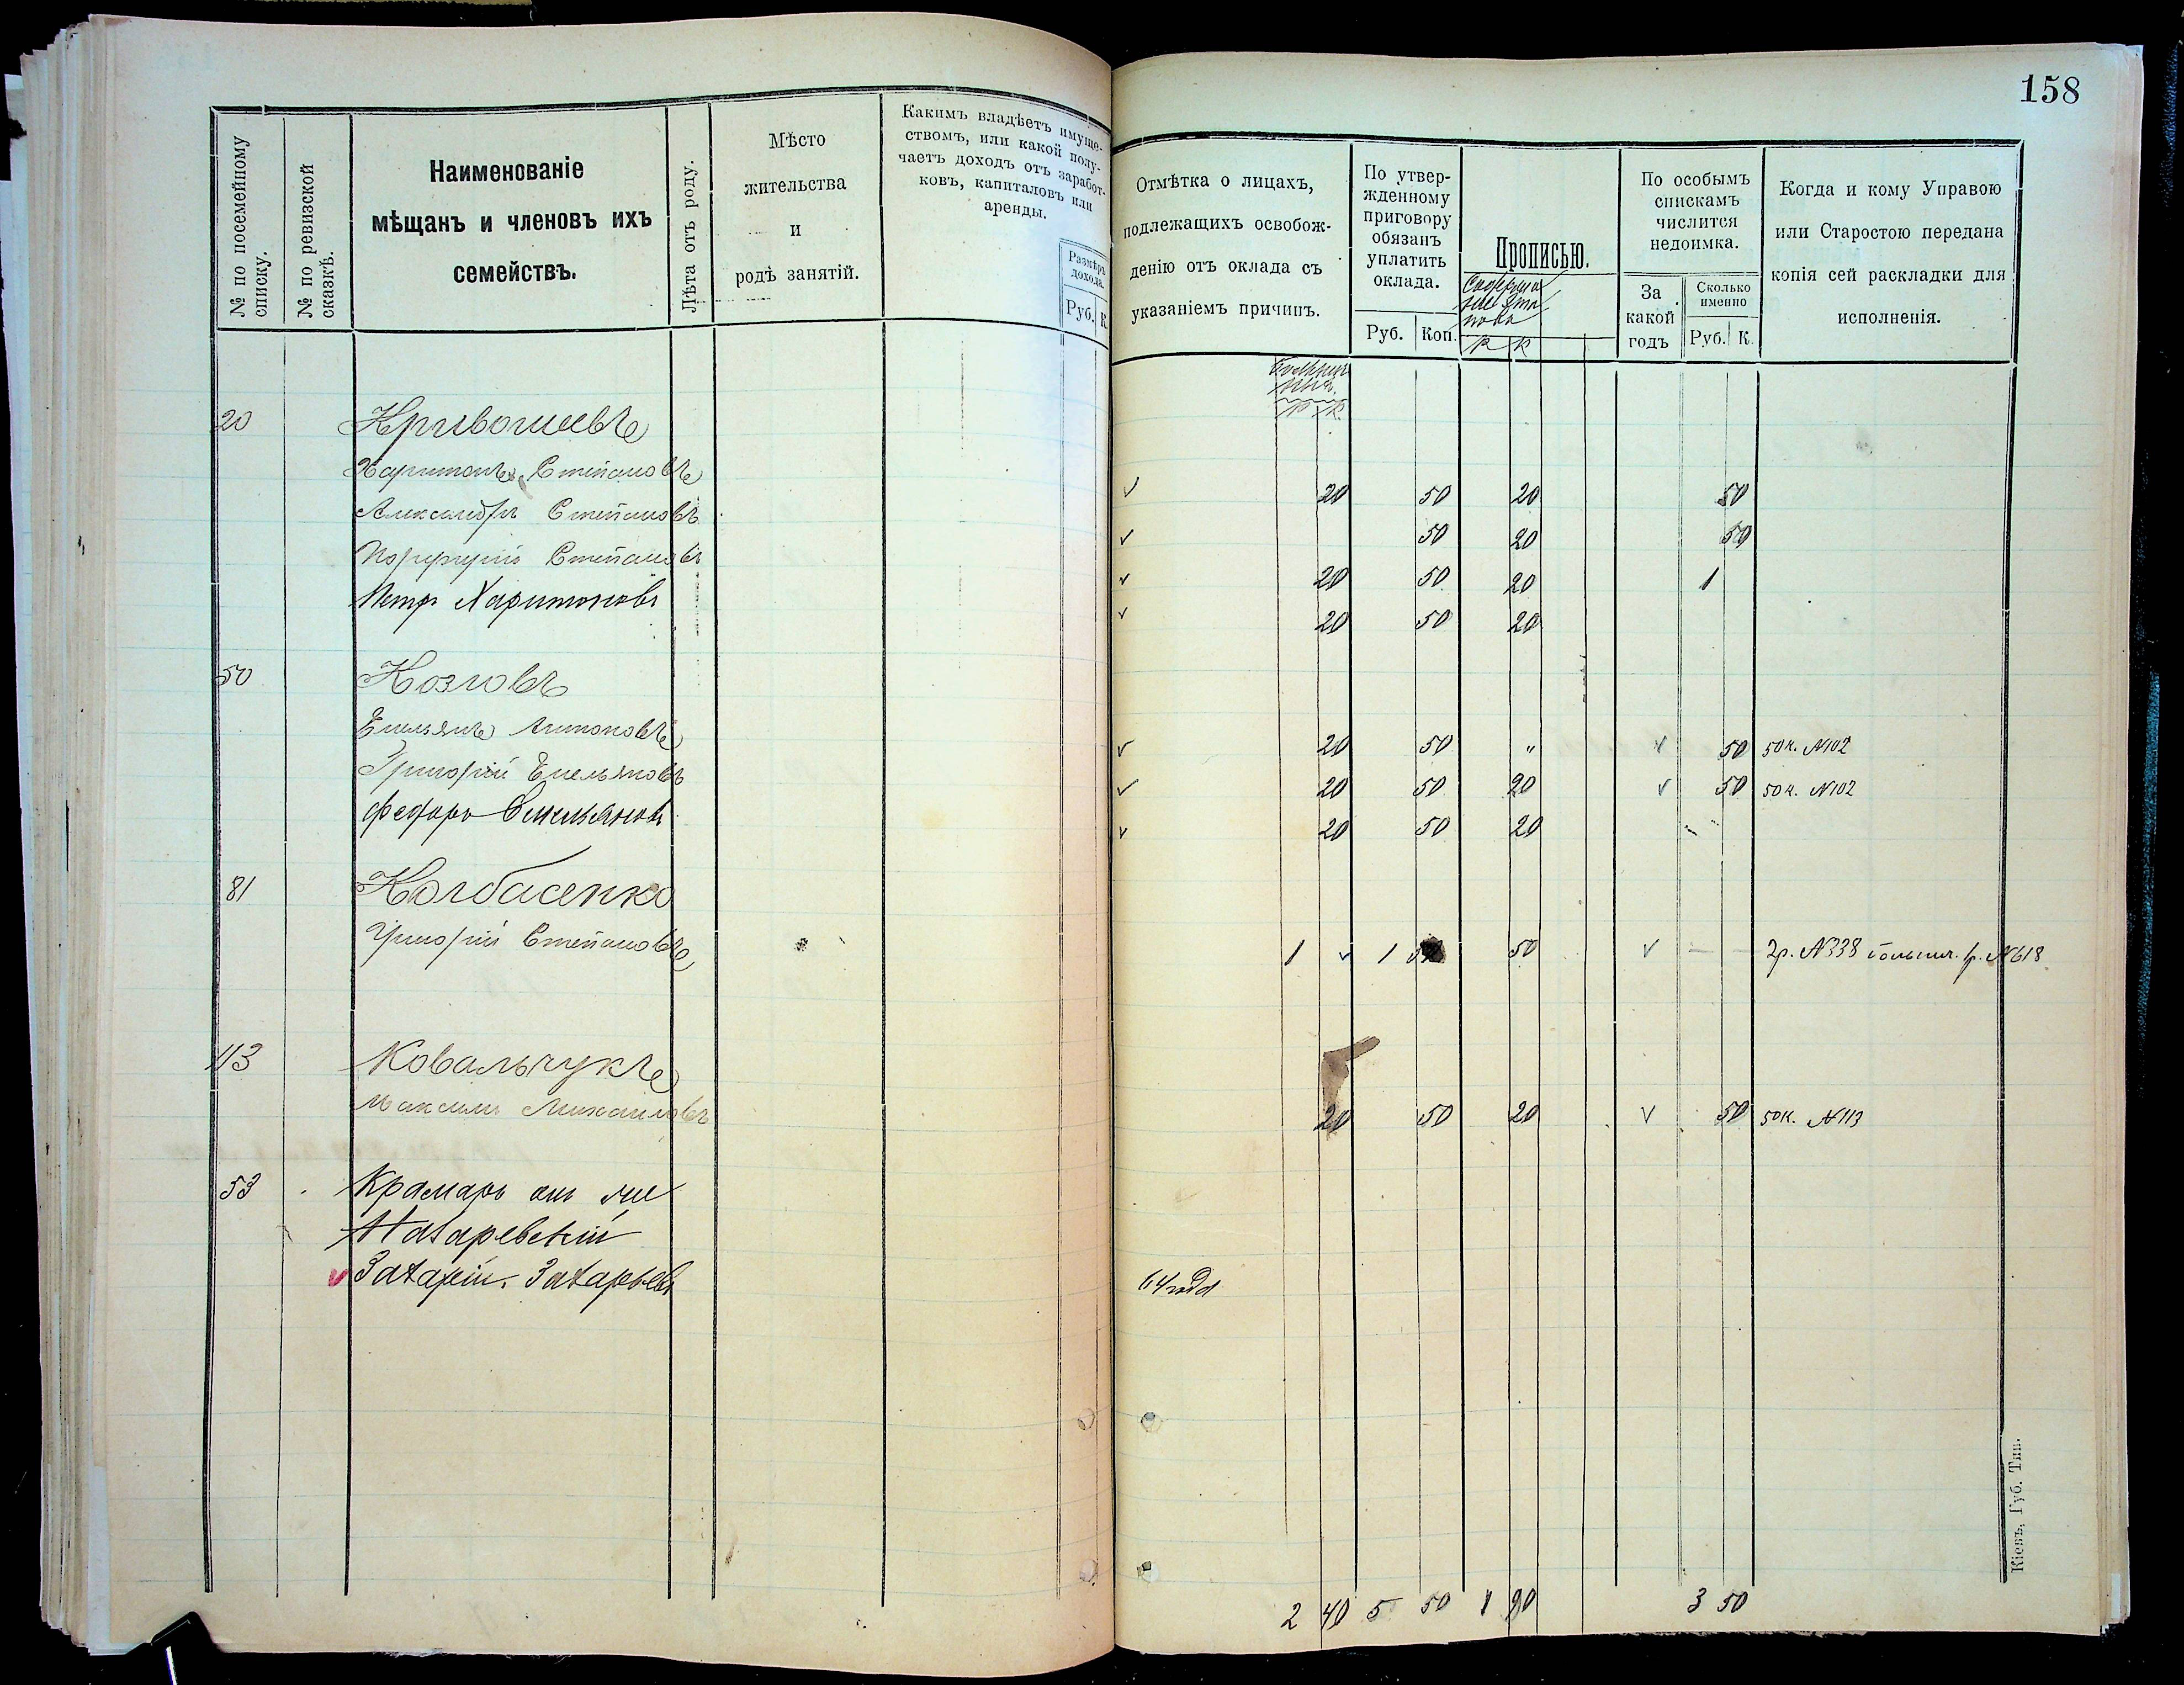 158
№ по посемейному списку.
№ по ревизской сказкѣ.
Наименованіе
мѣщанъ и членовъ ихъ
семействъ.
Лѣта отъ роду.
Мѣсто
жительства
и
родъ занятій.
Какимъ владѣетъ имуще-
ствомъ, или какой полу-
чаетъ доходъ отъ заработ-
ковъ, капиталовъ или
аренды.
Размѣръ
дохода.
Руб. К.
Отмѣтка о лицахъ,
подлежащихъ освобож-
денію отъ оклада съ
указаніемъ причинъ.
По утвер-
жденному
приговору
обязанъ
уплатить
оклада.
Руб. Коп.
Прописью.
Р К
По особымъ
спискамъ
числится
недоимка.
За
какой
годъ
Сколько
именно
Руб. К.
Когда и кому Управою
или Старостою передана
копія сей раскладки для
исполненія.
Р К
20 Кривошеевъ
Харитонъ Степановъ 20 50 20 50
Александръ Степановъ 50 20 50
Порфирій Степановъ 20 50 20 1
Петръ Харитоновъ 20 50 20
50 Козловъ
Емельянъ Антоновъ 20 50 " 50 50 к. №102
Григорій Емельяновъ 20 50 20 50 50 к. №102
Федоръ Емельяновъ 20 50 20
81 Колбасенко
Григорій Степановъ 1 1 50 50 2р. №338 больнич. 1р. №618
113 Ковальчукъ
Максимъ Михаиловъ 20 50 20 50 50 к. №113
53 Крамарь онъ же
Захаревскій
Захарій Захарьевъ 64 года
2 40 5 50 1 90 3 50
Кіевъ, Губ. Тип.